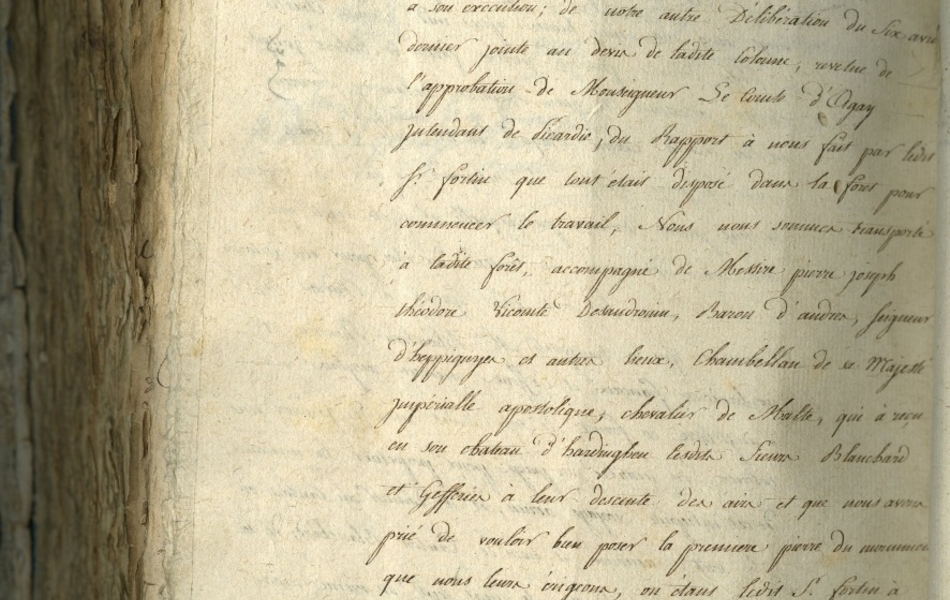 à son execution; de notre autre Délibération du Six avril
dernier jointe au devis de ladite Colonne, revetue de
l'approbation de Monseigneur Le Comte d'Agay
jntendant de Picardie, du Rapport à nous fait par ledit
Sr. fortin que tout était disposé dans la forêt pour
commencer le travail, Nous nous sommes transporté
à ladite forêt, accompagné de Messire pierre joseph
théodore Vicomte Desandrouin, Baron d'andres, Seigneur
d'heppignyes et autres lieux, Chambellan de sa Majesté
jmperialle apostolique, chevalier de Malte, qui à reçu
en son chateau d'hardinghen lesdits Sieurs Blanchard
et Gefferies à leur descente des airs et que nous avons
prié de vouloir bien poser la premiere pierre du monument
que nous leurs érigeons, ou étans ledit Sr. fortin à